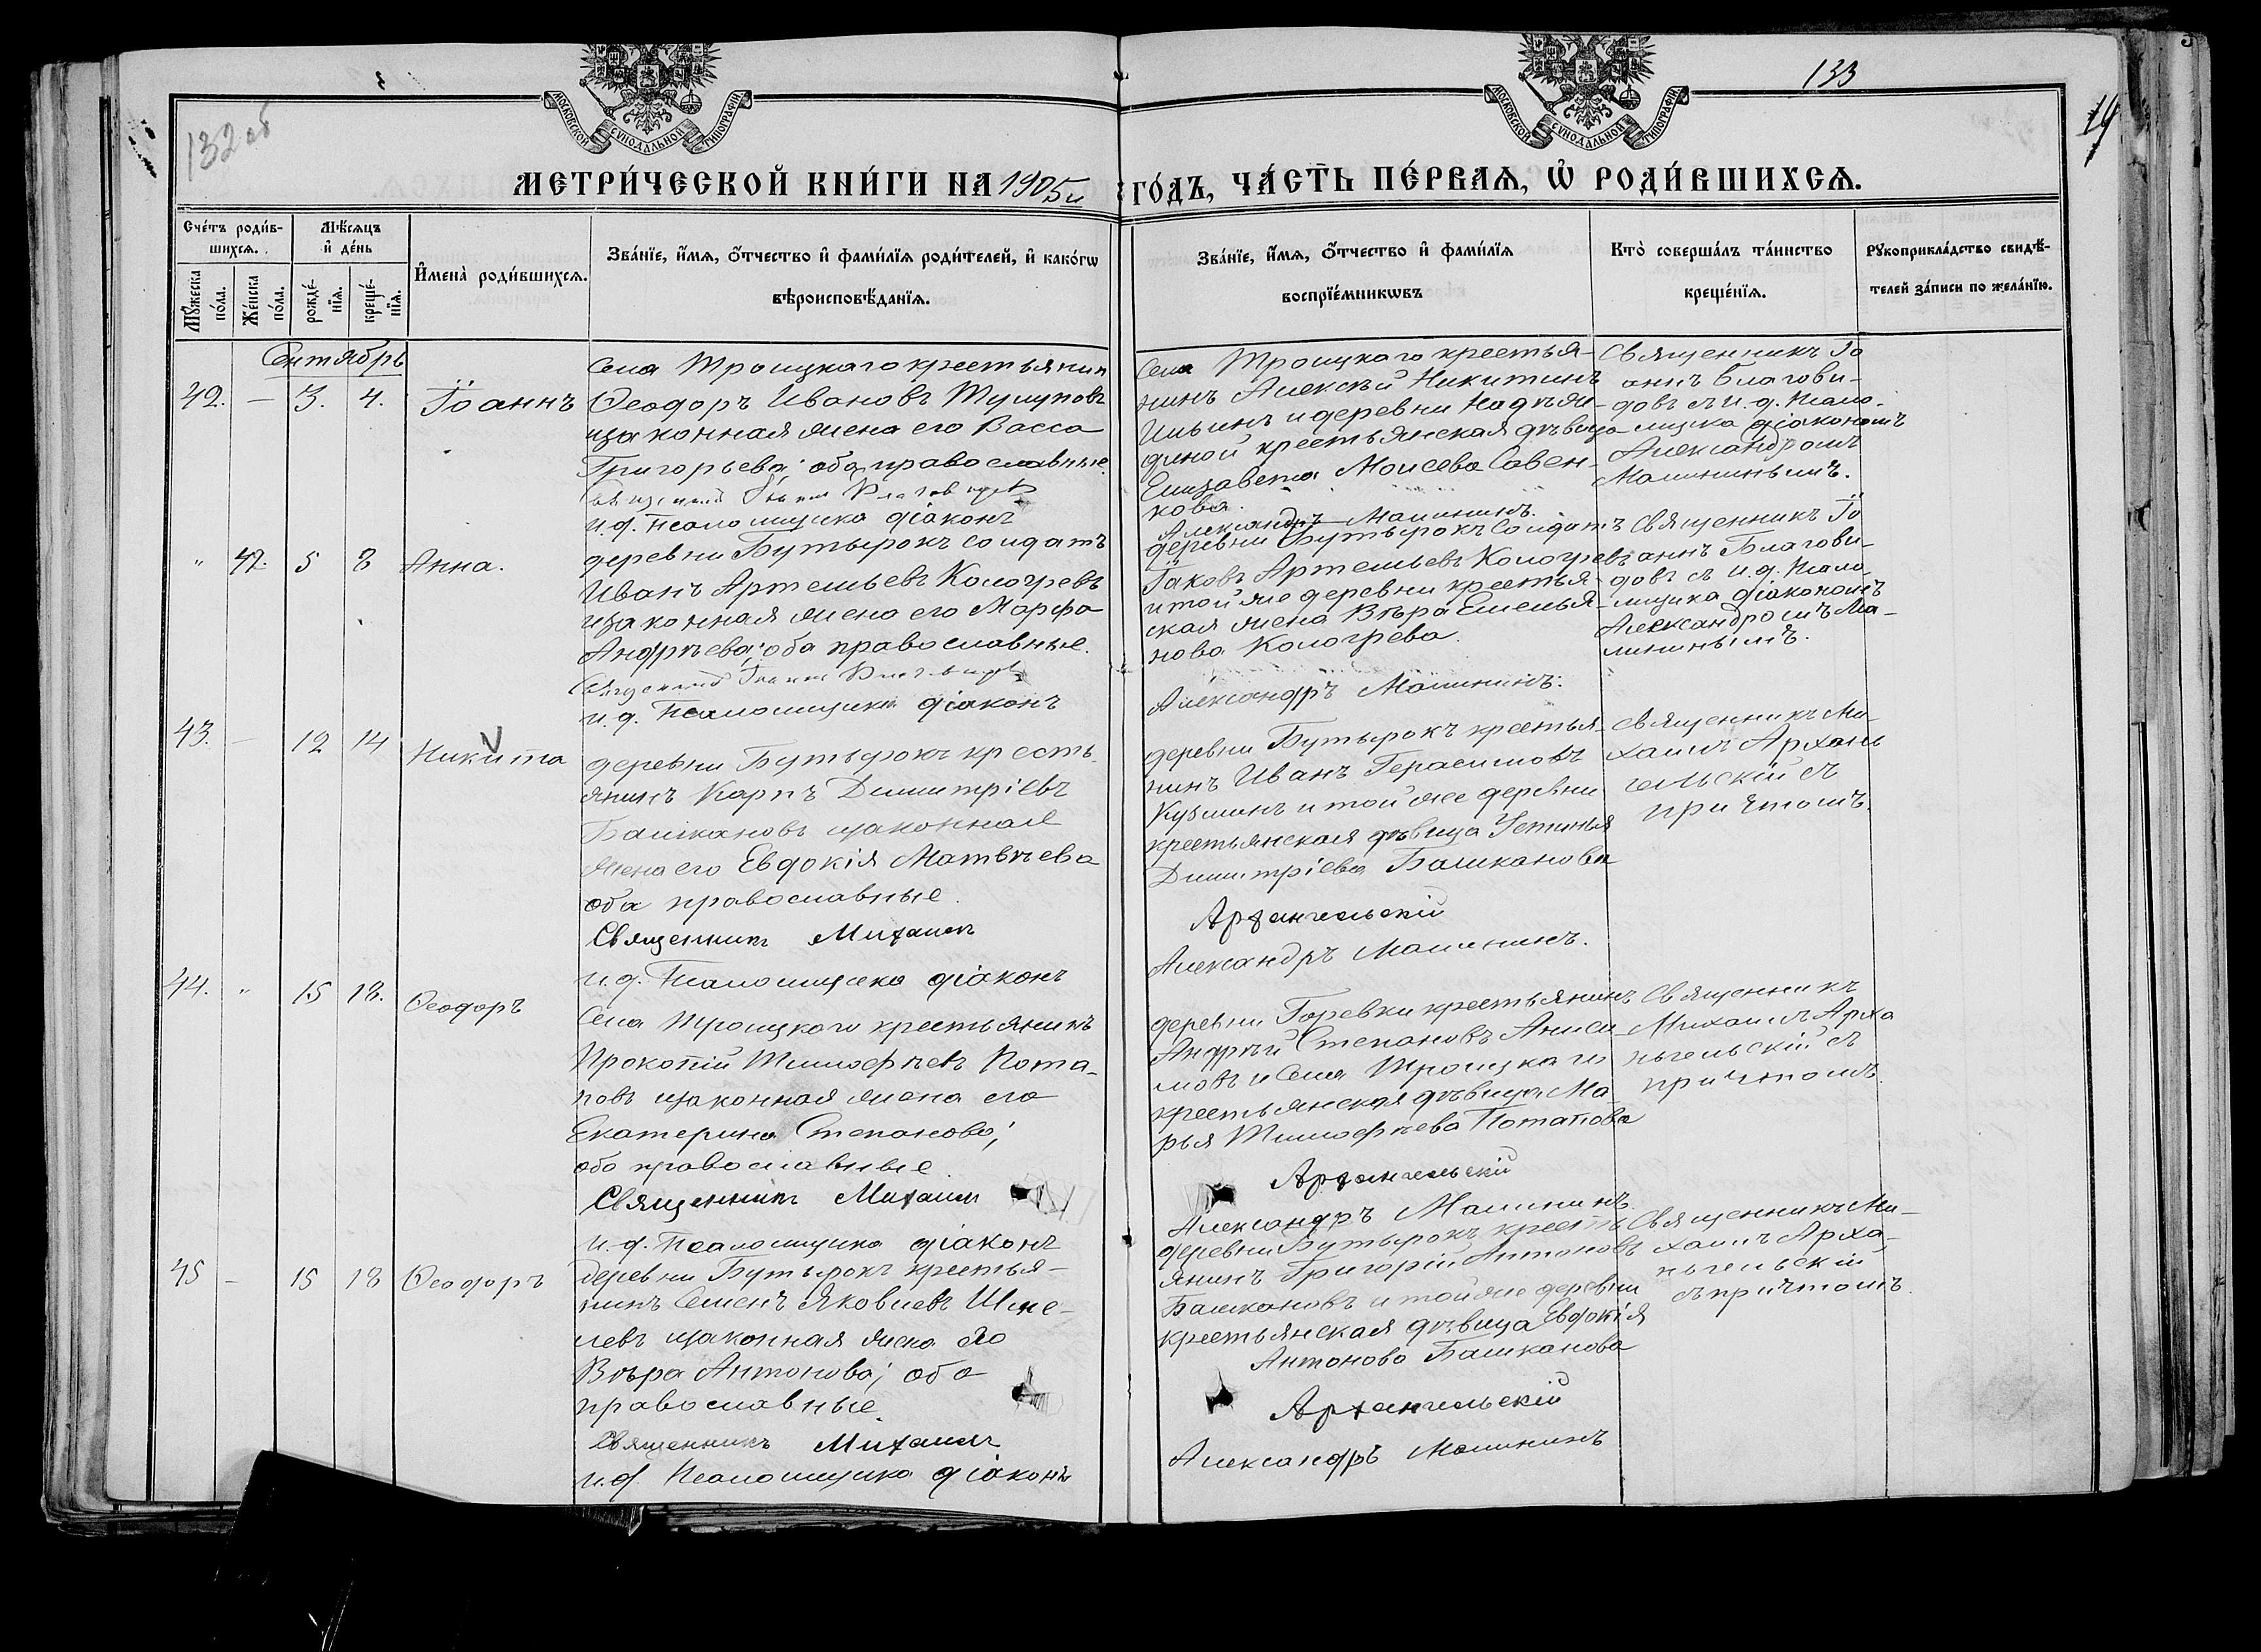 132 об
133
19
МОСКОВСКОЙ СѴНОДАЛЬНОЙ ТИПОГРАФІИ
МОСКОВСКОЙ СѴНОДАЛЬНОЙ ТИПОГРАФІИ
МЕТРИ́ЧЕСКОЙ КНИ́ГИ НА 1905й ГО́ДЪ, ЧА́СТЬ ПЕ́РВАЯ, Ѡ РОДИ́ВШИХСЯ.
Сче́тъ роди́в-
шихся.
Мѣ́сяцъ
и҆ де́нь
Мꙋ́жеска
по́ла.
Же́нска
по́ла.
рожде́-
нїя.
креще́-
нїя.
И҆мена̀ роди́вшихся.
Зва́нїе, и҆́мя, ѻ҆́тчество и҆ фами́лїя роди́телей, и҆ како́гѡ
вѣроисповѣ́данїя.
Зва́нїе, и҆́мя, ѻ҆́тчество и҆ фами́лїя
воспрїе́мникѡвъ
Кто̀ соверша́лъ та́инство
креще́нїя.
Рꙋкоприкла́дство свидѣ́-
телей за́писи по жела́нїю.
Сентябрь
42. — 3. 4. Іоаннъ
Села Троицкаго крестьянин
Ѳеодоръ Ивановъ Тулуповъ
изаконная жена его Васса
Григорьева; оба православные.
Священникъ Іоаннъ Благовидовъ
и.д. Псаломщика діаконъ
Села Троицкаго крестья-
нинъ Алексѣй Никитинъ
Ильинъ и деревни Надеж-
диной крестьянская дѣвица
Елизавета Моисева Савен-
кова.
Александръ Малининъ.
Священникъ Іо
аннъ Благови-
довъ съ и.д. Псало-
мщика діакономъ
Александромъ
Малининымъ.
" 42. 5 8 Анна.
деревни Бутырокъ солдатъ
Иванъ Артемьевъ Кологревъ
изаконная жена его Марфа
Андрѣева; оба православные.
Священникъ Іоаннъ Благовидовъ
и.д. Псаломщика діаконъ
деревни Бутырокъ солдатъ
Іаковъ Артемьевъ Кологревъ
и той же деревни крестья-
ская жена Вѣра Емелья-
нова Кологрева.
Александръ Малининъ.
Священникъ Іо
аннъ Благови-
довъ съ и.д. Псало-
мщика діакономъ
Александромъ Ма-
лининымъ.
43. — 12 14 Никита
деревни Бутырокъ кресть-
янинъ Карпъ Димитріевъ
Башкановъ изаконная
жена его Евдокія Матвѣева
оба православные.
Священникъ Михаилъ
и.д. Псаломщика діаконъ
деревни Бутырокъ крестья-
нинъ Иванъ Герасимовъ
Кузминъ и той же деревни
крестьянская дѣвица Устинья
Димитріева Башканова
Архангельскій
Александръ Малининъ.
священникъ Ми-
хаилъАрхан
гельскій съ
причтомъ.
44. " 15 18. Ѳеодоръ
Села Троицкаго крестьянинъ
Прокопій Тимофѣевъ Пота-
повъ изаконная жена его
Екатерина Степанова;
оба православные.
Священникъ Михаилъ
и.д. Псаломщика діаконъ
деревни Горевки крестьянинъ
Андрѣй Степановъ Аниси-
мовъ и Села Троицкаго
крестьянская дѣвица Ма-
рья Тимофѣева Потапова
Архангельскій
Александръ Малининъ.
Священникъ
Михаилъ Арха
нгельскій съ
причтомъ.
45 — 15 18 Ѳеодоръ
деревни Бутырокъ крестья-
нинъ Семенъ Яковлевъ Шме-
левъ изаконная жена его
Вѣра Антонова; оба
православные.
Священникъ Михаилъ
и.д. Псаломщика діаконъ
деревни Бутырокъ кресть
янинъ Григорій Антоновъ
Башкановъ и той же деревни
крестьянская дѣвица Евдокія
Антонова Башканова
Архангельскій
Александръ Малининъ
Священникъ Ми-
хаилъ Арха-
нгельскій
съ причтомъ.